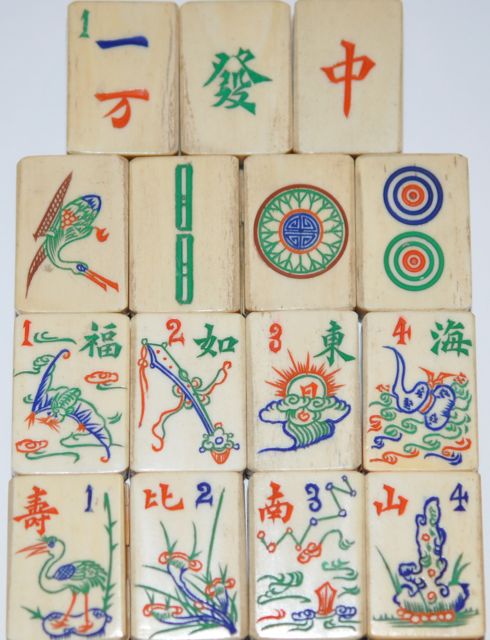 1
一
万
發
中
1 福
2 如
3 東
日
4 海
壽 1
比 2
南 3
山 4